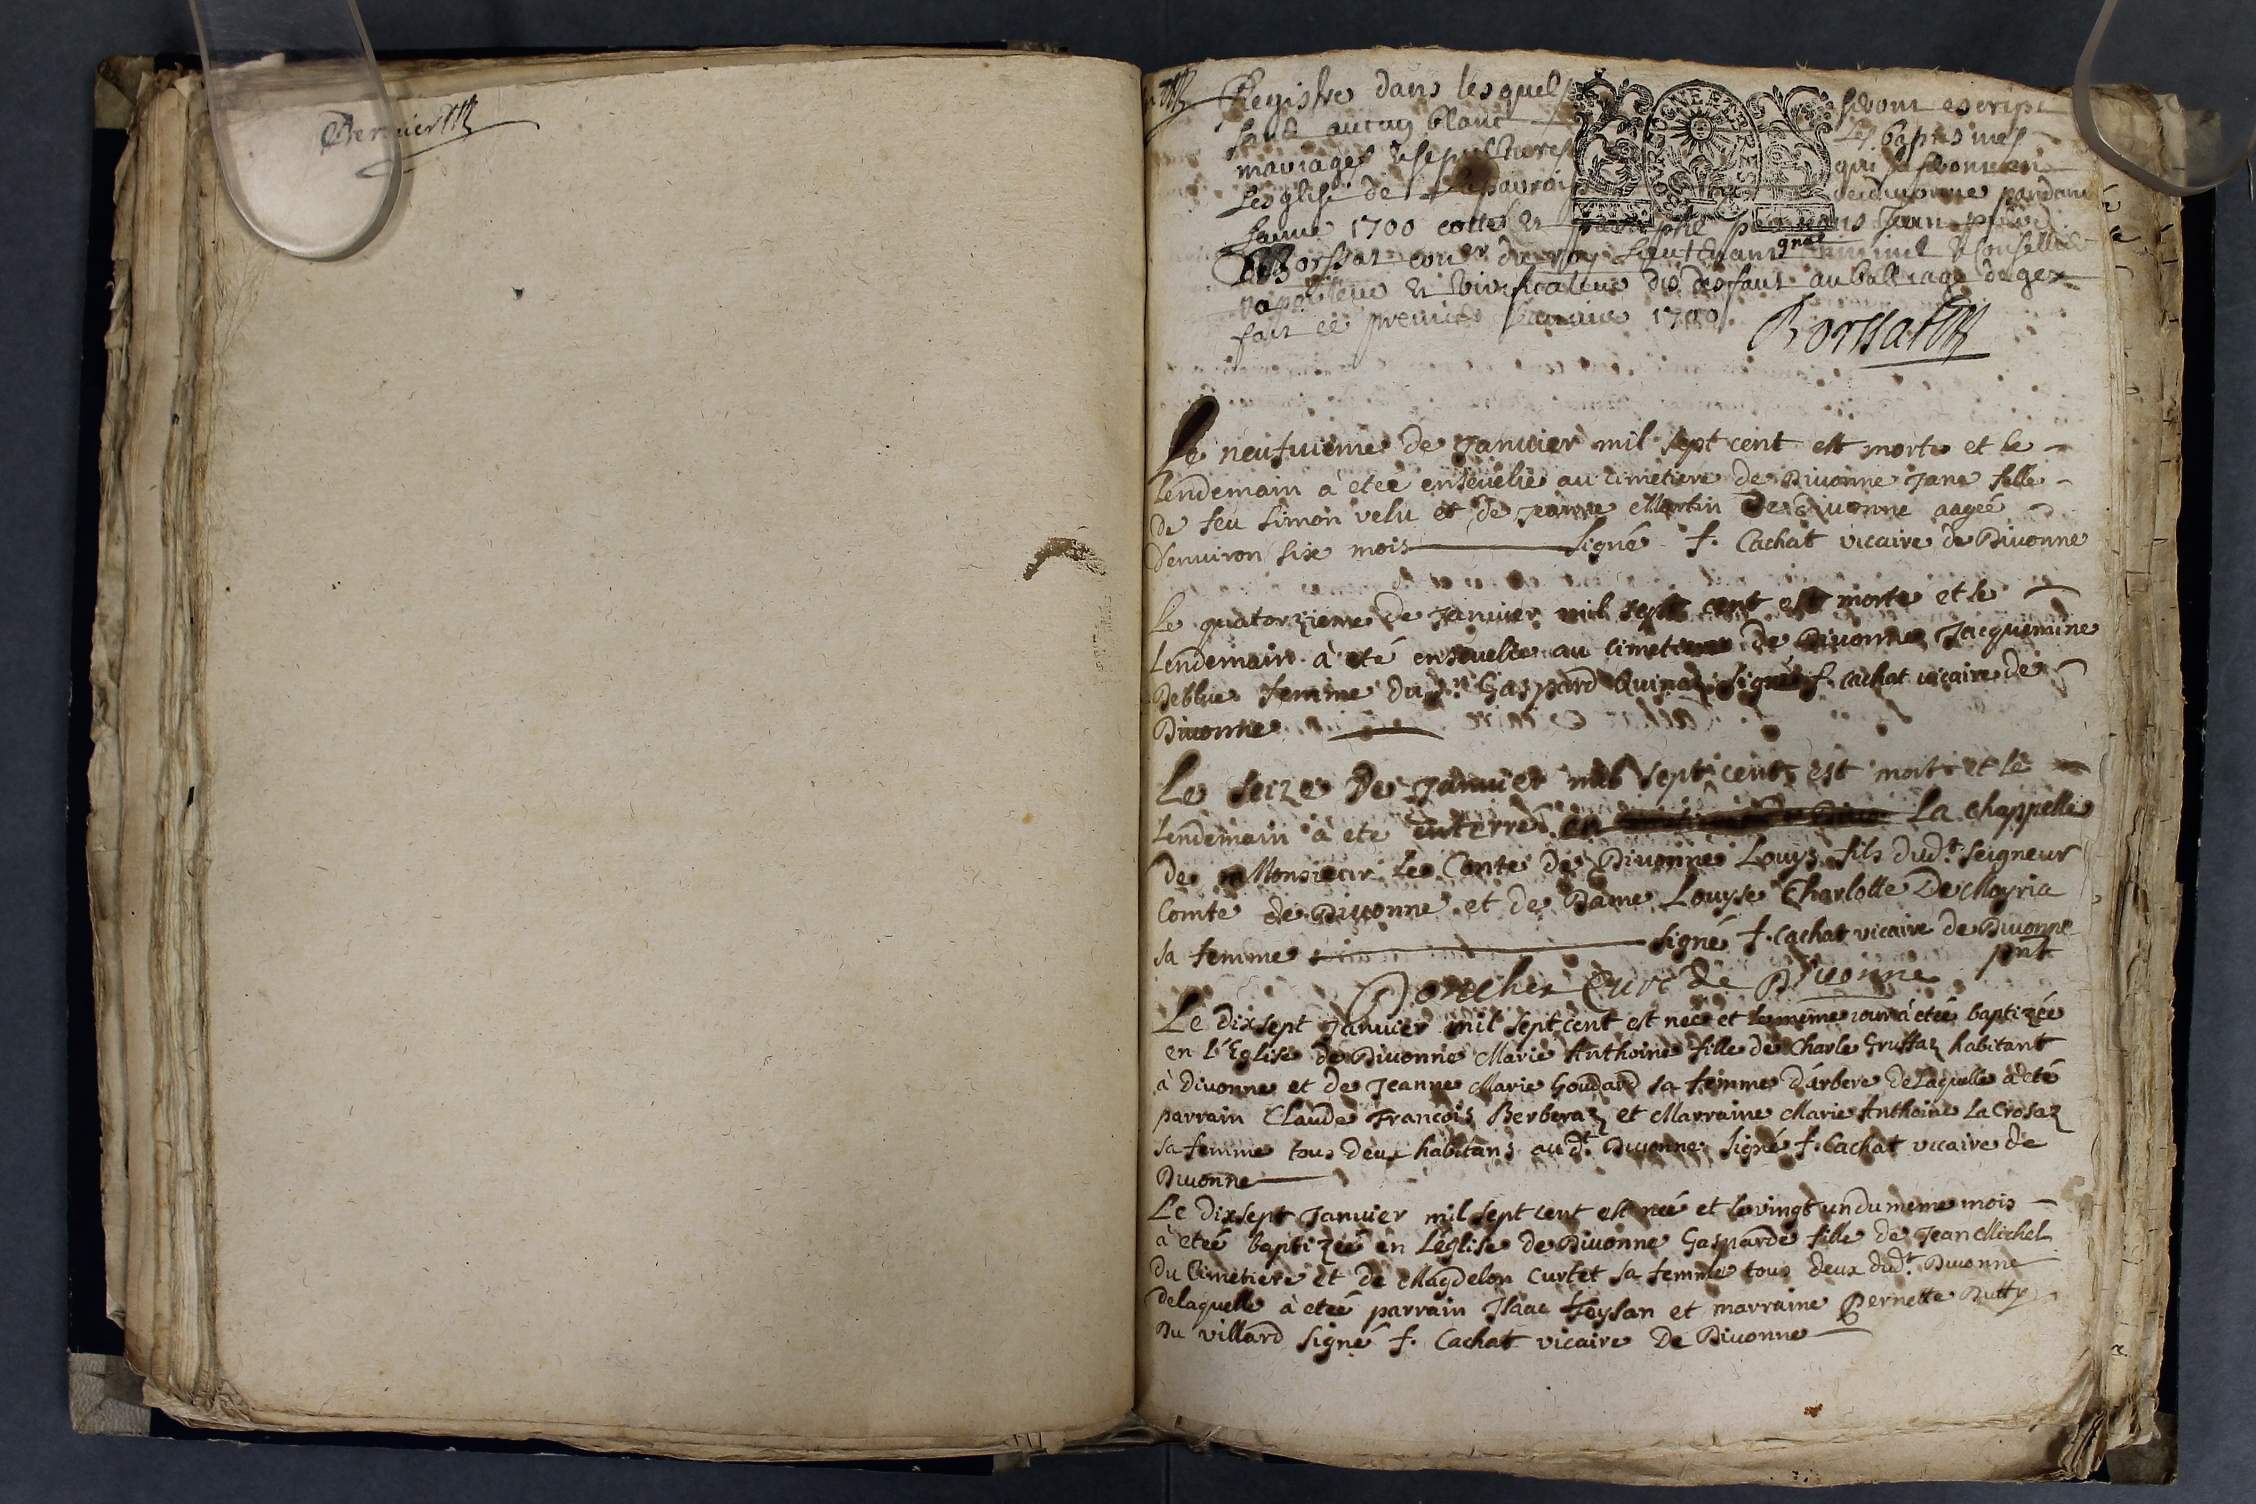 Bernier
Registre dans lesquels seront escript
sans aucun blanc les baptesmes
mariages & sepultures qui se feront en
Leglise de La parroisse de divonne pandant
Lanne 1700 cotté & paraphé par nous Jean
Borssat con.er du roy Lieutenant gnal criminel & Conseillier
raporteur & verificateur des desfaut au balliage de gex
fait ce premier Janvier 1700
Borssat
Le neufuieme de Januier mil sept cent est morte et le
lendemain à eteé enseuelie au cimetiere de Diuonne Jane fille
De feu Simon velu et de Jeanne Martin De Diuonne aagée
D'enuiron six mois signé f. Cachat vicaire de Diuonne
Le quatorzieme de Januier mil sept cent est morte et le
Lendemain à eté enseuelie au cimetiere de Diuonne Jacquemine
Deblue femme du Sr. Gaspard signé f. cachat vicaire de
Diuonne
Le seize De Januier mil sept cent est mort et le
lendemain à ete enterré en La chappelle
de Monsieur Le Conte de Diuonne Louys fils dud.t seigneur
Comte de Diuonne et de Dame Louyse Charlotte De Moyria
sa femme signé f. Cachat vicaire de Diuonne
pnt
Poncher Curé de Divonne
Le dixsept Januier mil sept cent est neé et le meme iour à eteé baptizeé
en l'Eglise de Diuonne Marie Anthoine fille de Charle Gruffaz habitant
à Diuonne et de Jeanne Marie Goudard sa femme d'arbere de Laquelle à eté
parrain Claude François Berberaz et Marraine Marie Anthoine La Crosaz
sa femme tous deux habitans aud.t Diuonne signé f. Cachat vicaire de
Diuonne
Le dixsept Januier mil sept cent est neé et le vingt un du meme mois
à eteé baptizeé en L'eglise de Diuonne Gasparde fille de Jean Michel
Du Cimetiere et de Magdelon Curtet sa femme tous deux dud.t Diuonne
delaquelle à eteé parrain Isaac Feysan et marraine Pernette Dutty
Du villard signé f. Cachat vicaire De Diuonne